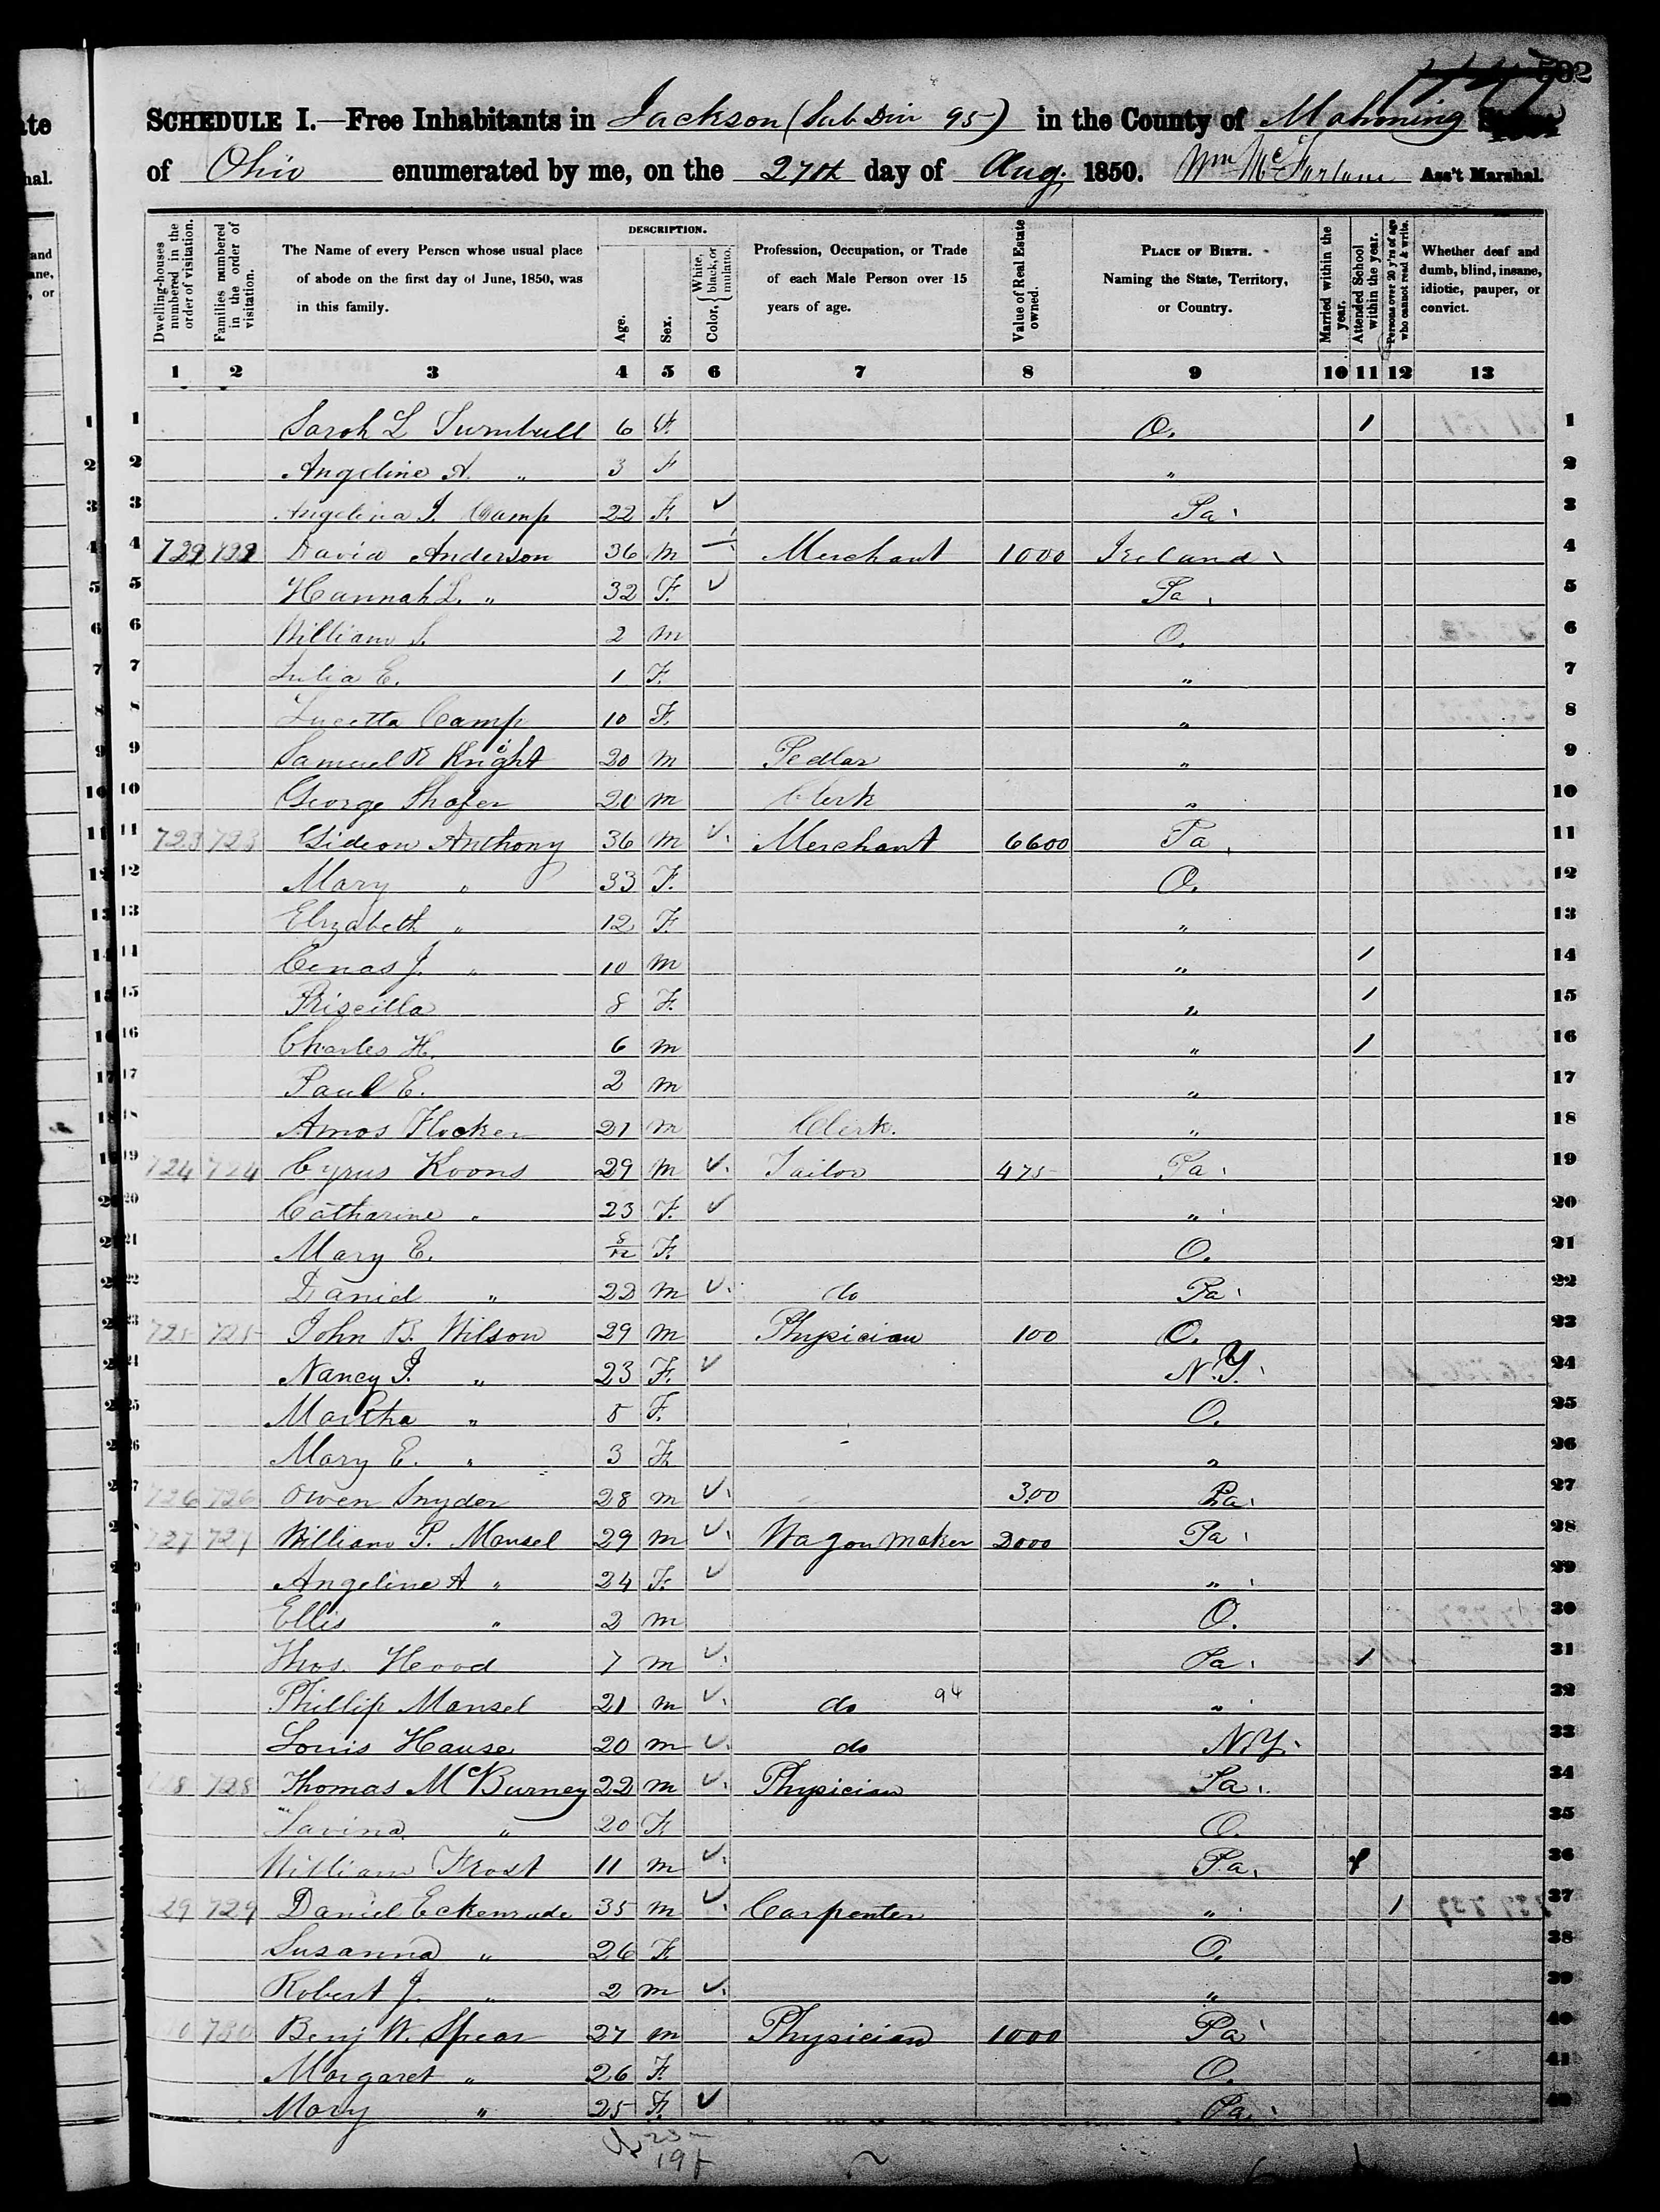 502
SCHEDULE I.—Free Inhabitants in Jackson (Sub Div 95) in the County of Mahoning State
of Ohio enumerated by me, on the 27th day of Aug. 1850. Wm McFarlane Ass't Marshal.
Dwelling-houses numbered in the order of visitation.
Families numbered in the order of visitation.
The Name of every Person whose usual place of abode on the first day of June, 1850, was in this family.
DESCRIPTION.
Age.
Sex.
Color, White, black, or mulatto.
Profession, Occupation, or Trade of each Male Person over 15 years of age.
Value of Real Estate owned.
PLACE OF BIRTH. Naming the State, Territory, or Country.
Married within the year.
Attended School within the year.
Persons over 20 y'rs of age who cannot read & write.
Whether deaf and dumb, blind, insane, idiotic, pauper, or convict.
1 2 3 4 5 6 7 8 9 10 11 12 13
1 Sarah L Turnbull 6 F. O. 1 1
2 Angeline A. " 3 F " 2
3 Angelina J. Camp 22 F. ✓ Pa. 3
4 722 722 David Anderson 36 m Merchant 1000 Ireland 4
5 Hannah L. " 32 F. ✓ Pa. 5
6 William S. 2 m O. 6
7 Julia E. 1 F. " 7
8 Lucetta Camp 10 F. " 8
9 Samuel R Knight 20 m Pedlar " 9
10 George Shafer 20 m Clerk " 10
11 723 723 Gideon Anthony 36 m ✓ Merchant 6600 Pa. 11
12 Mary " 33 F. O. 12
13 Elizabeth " 12 F. " 13
14 Cenas J. " 10 m " 1 14
15 Priscilla 8 F. " 1 15
16 Charles H. 6 m " 1 16
17 Paul E. 2 m " 17
18 Amos Flocker 21 m Clerk. " 18
19 724 724 Cyrus Koons 29 m ✓ Tailor 475 Pa. 19
20 Catharine " 23 F. ✓ " 20
21 Mary E. 8/12 F. O. 21
22 Daniel " 22 m ✓ do Pa. 22
23 725 725 John B. Wilson 29 m Physician 100 O. 23
24 Nancy J. " 23 F. ✓ N.Y. 24
25 Martha " 5 F. O. 25
26 Mary E. " 3 F. " 26
27 726 726 Owen Snyder 28 m ✓ 300 Pa. 27
28 727 727 William P. Mansel 29 m ✓ Wagon maker 2000 Pa 28
29 Angeline A. " 24 F. ✓ " 29
30 Ellis " 2 m O. 30
31 Thos. Hood 7 m ✓ Pa. 1 31
32 Phillip Mansel 21 m ✓ do 94 " 32
33 Louis Hause 20 m ✓ do N.Y. 33
728 728 Thomas McBurney 22 m ✓ Physician Pa. 34
Lavina " 20 F. O. 35
William Frost 11 m ✓ Pa. 1 36
729 729 Daniel Eckenrude 35 m ✓ Carpenter " 1 37
Susanna " 26 F. O. 38
Robert J. " 2 m ✓ " 39
730 Benj W. Spear 27 m Physician 1000 Pa 40
Margaret " 26 F. O. 41
Mary " 25 F. ✓ Pa. 42
23 m
19 f